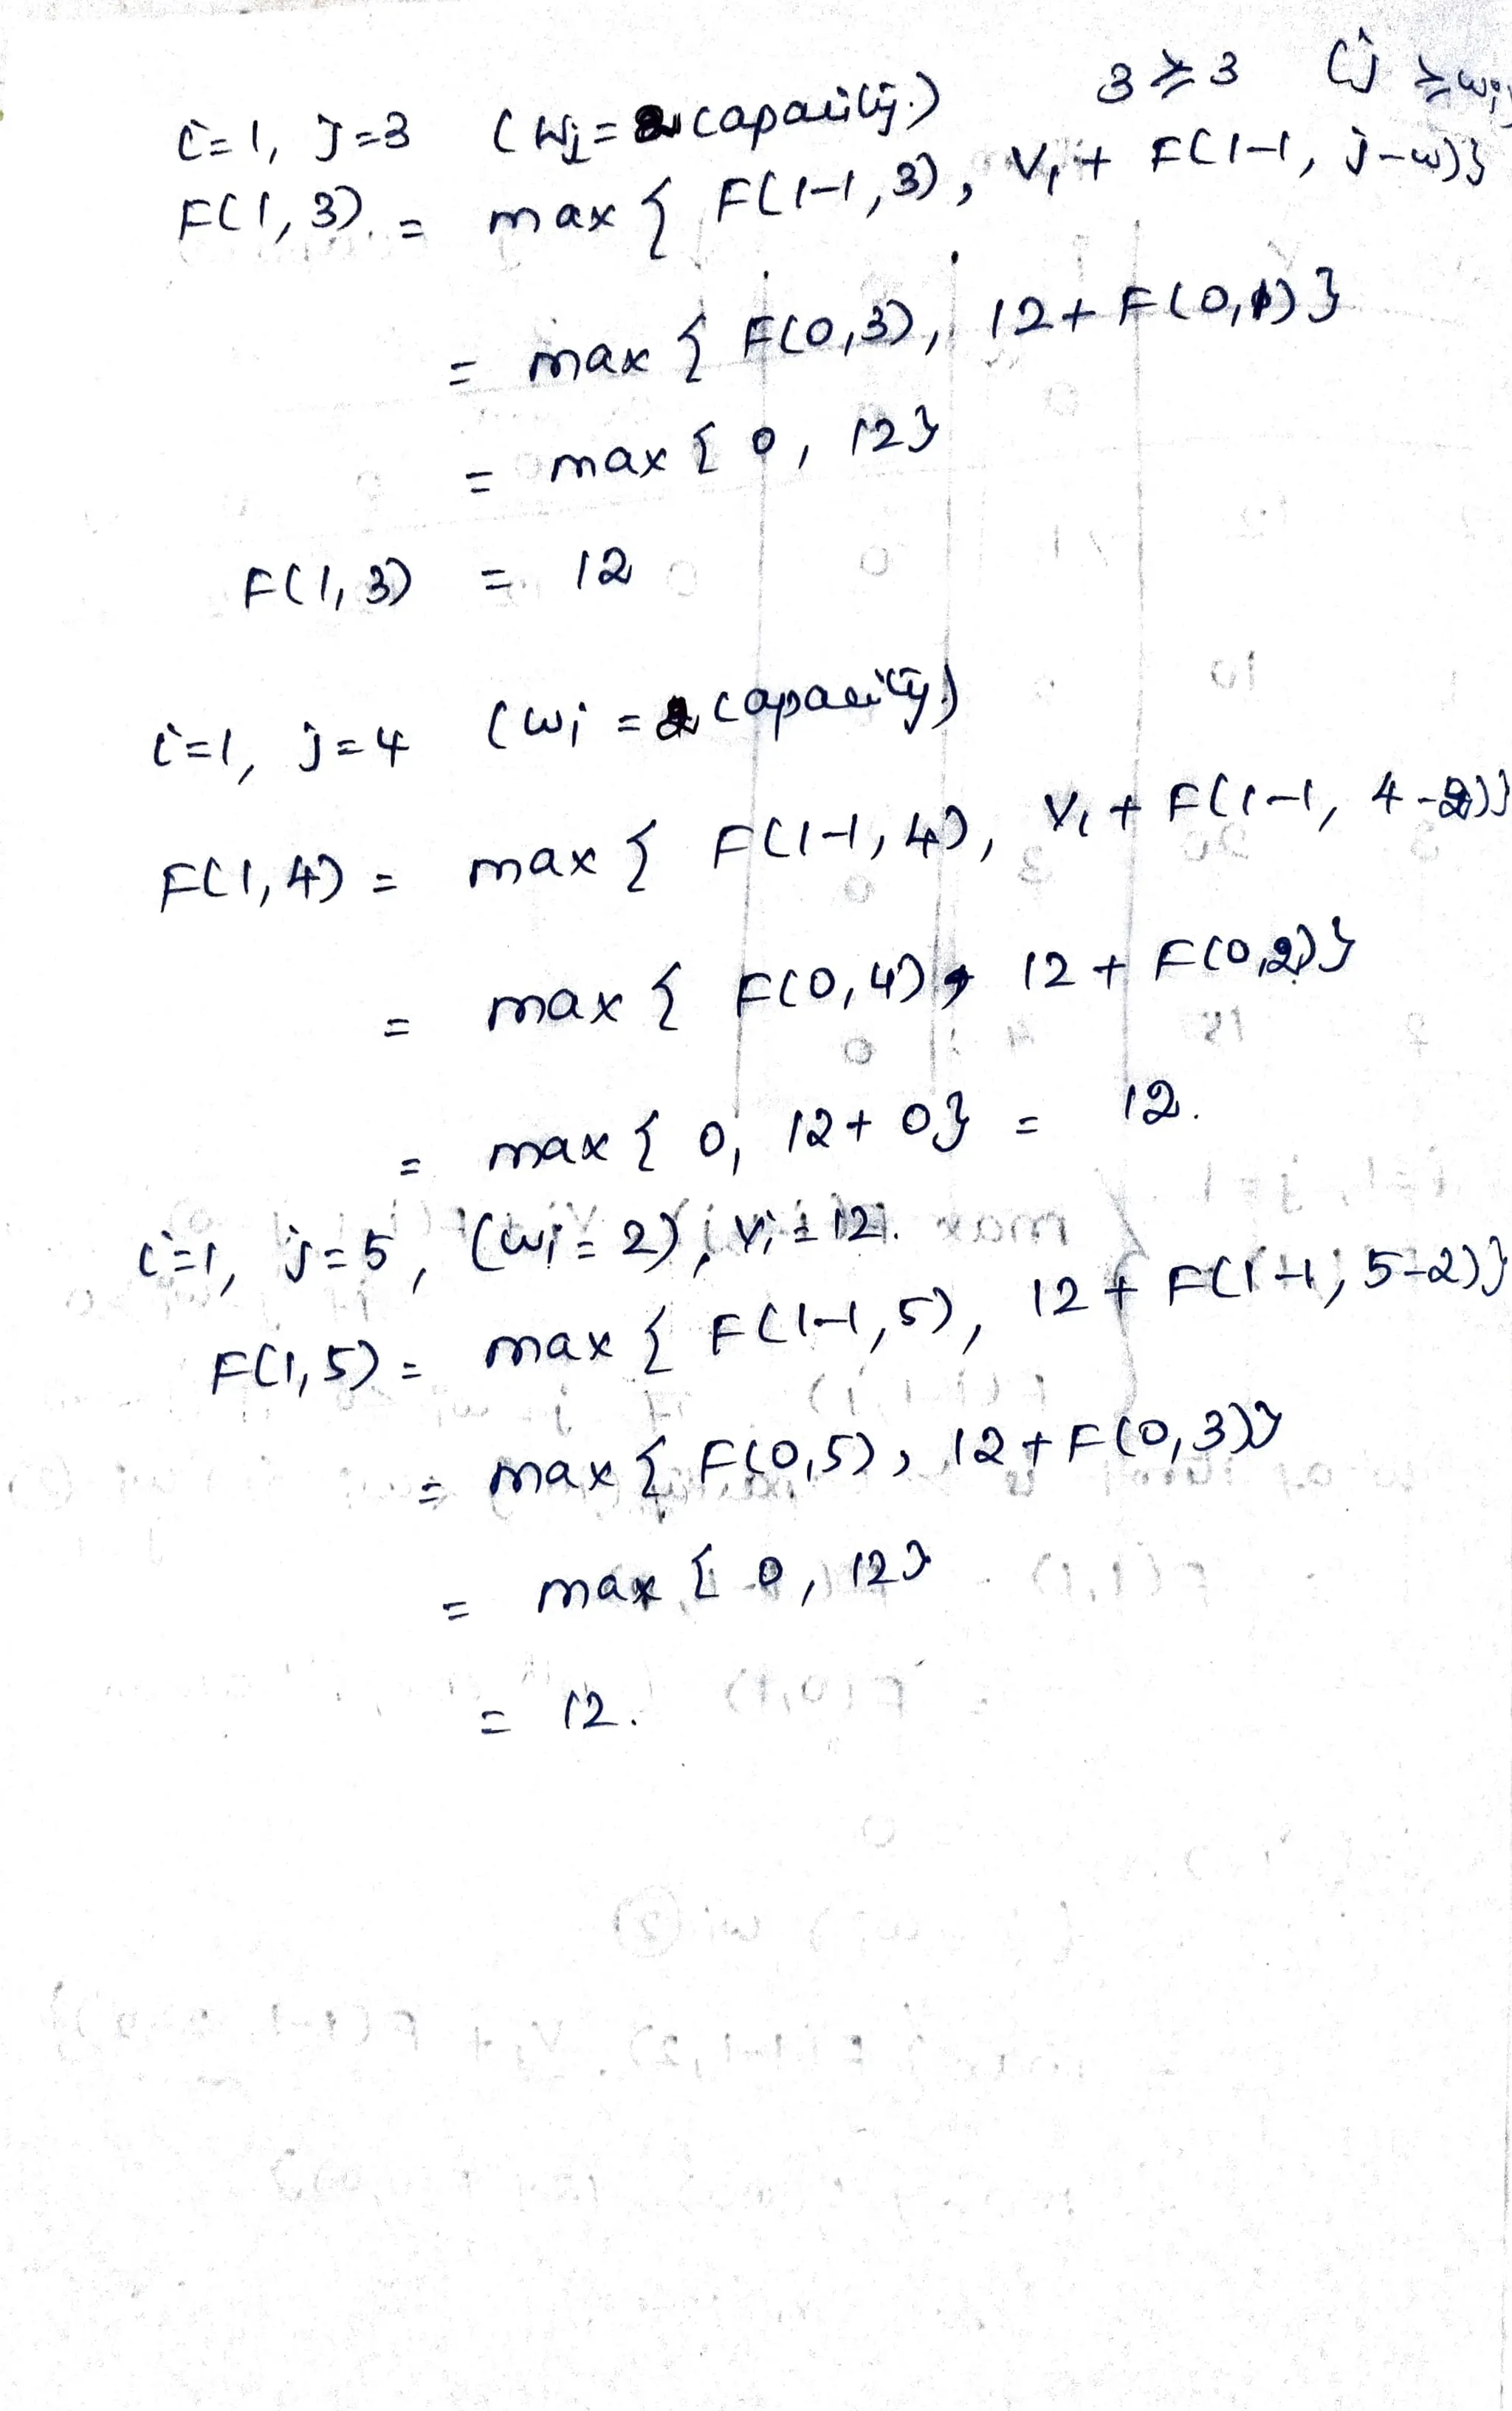 i=1, j=3 (wi = 2 capacity.) 3 ≥ 3 (j ≥ wi)
F(1,3) = max { F(1-1,3), V1 + F(1-1, j-w)}
= max { F(0,3), 12 + F(0,1)}
= max { 0, 12}
F(1,3) = 12
i=1, j=4 (wi = 2 capacity.)
F(1,4) = max { F(1-1,4), V1 + F(1-1, 4-2)}
= max { F(0,4), 12 + F(0,2)}
= max { 0, 12+0} = 12.
i=1, j=5, (wi = 2), Vi = 12.
F(1,5) = max { F(1-1,5), 12 + F(1-1, 5-2)}
= max { F(0,5), 12 + F(0,3)}
= max { 0, 12}
= 12.